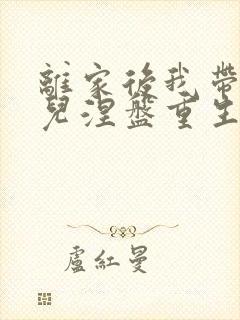 離家後我帶
兒涅盤重生
盧紅曼